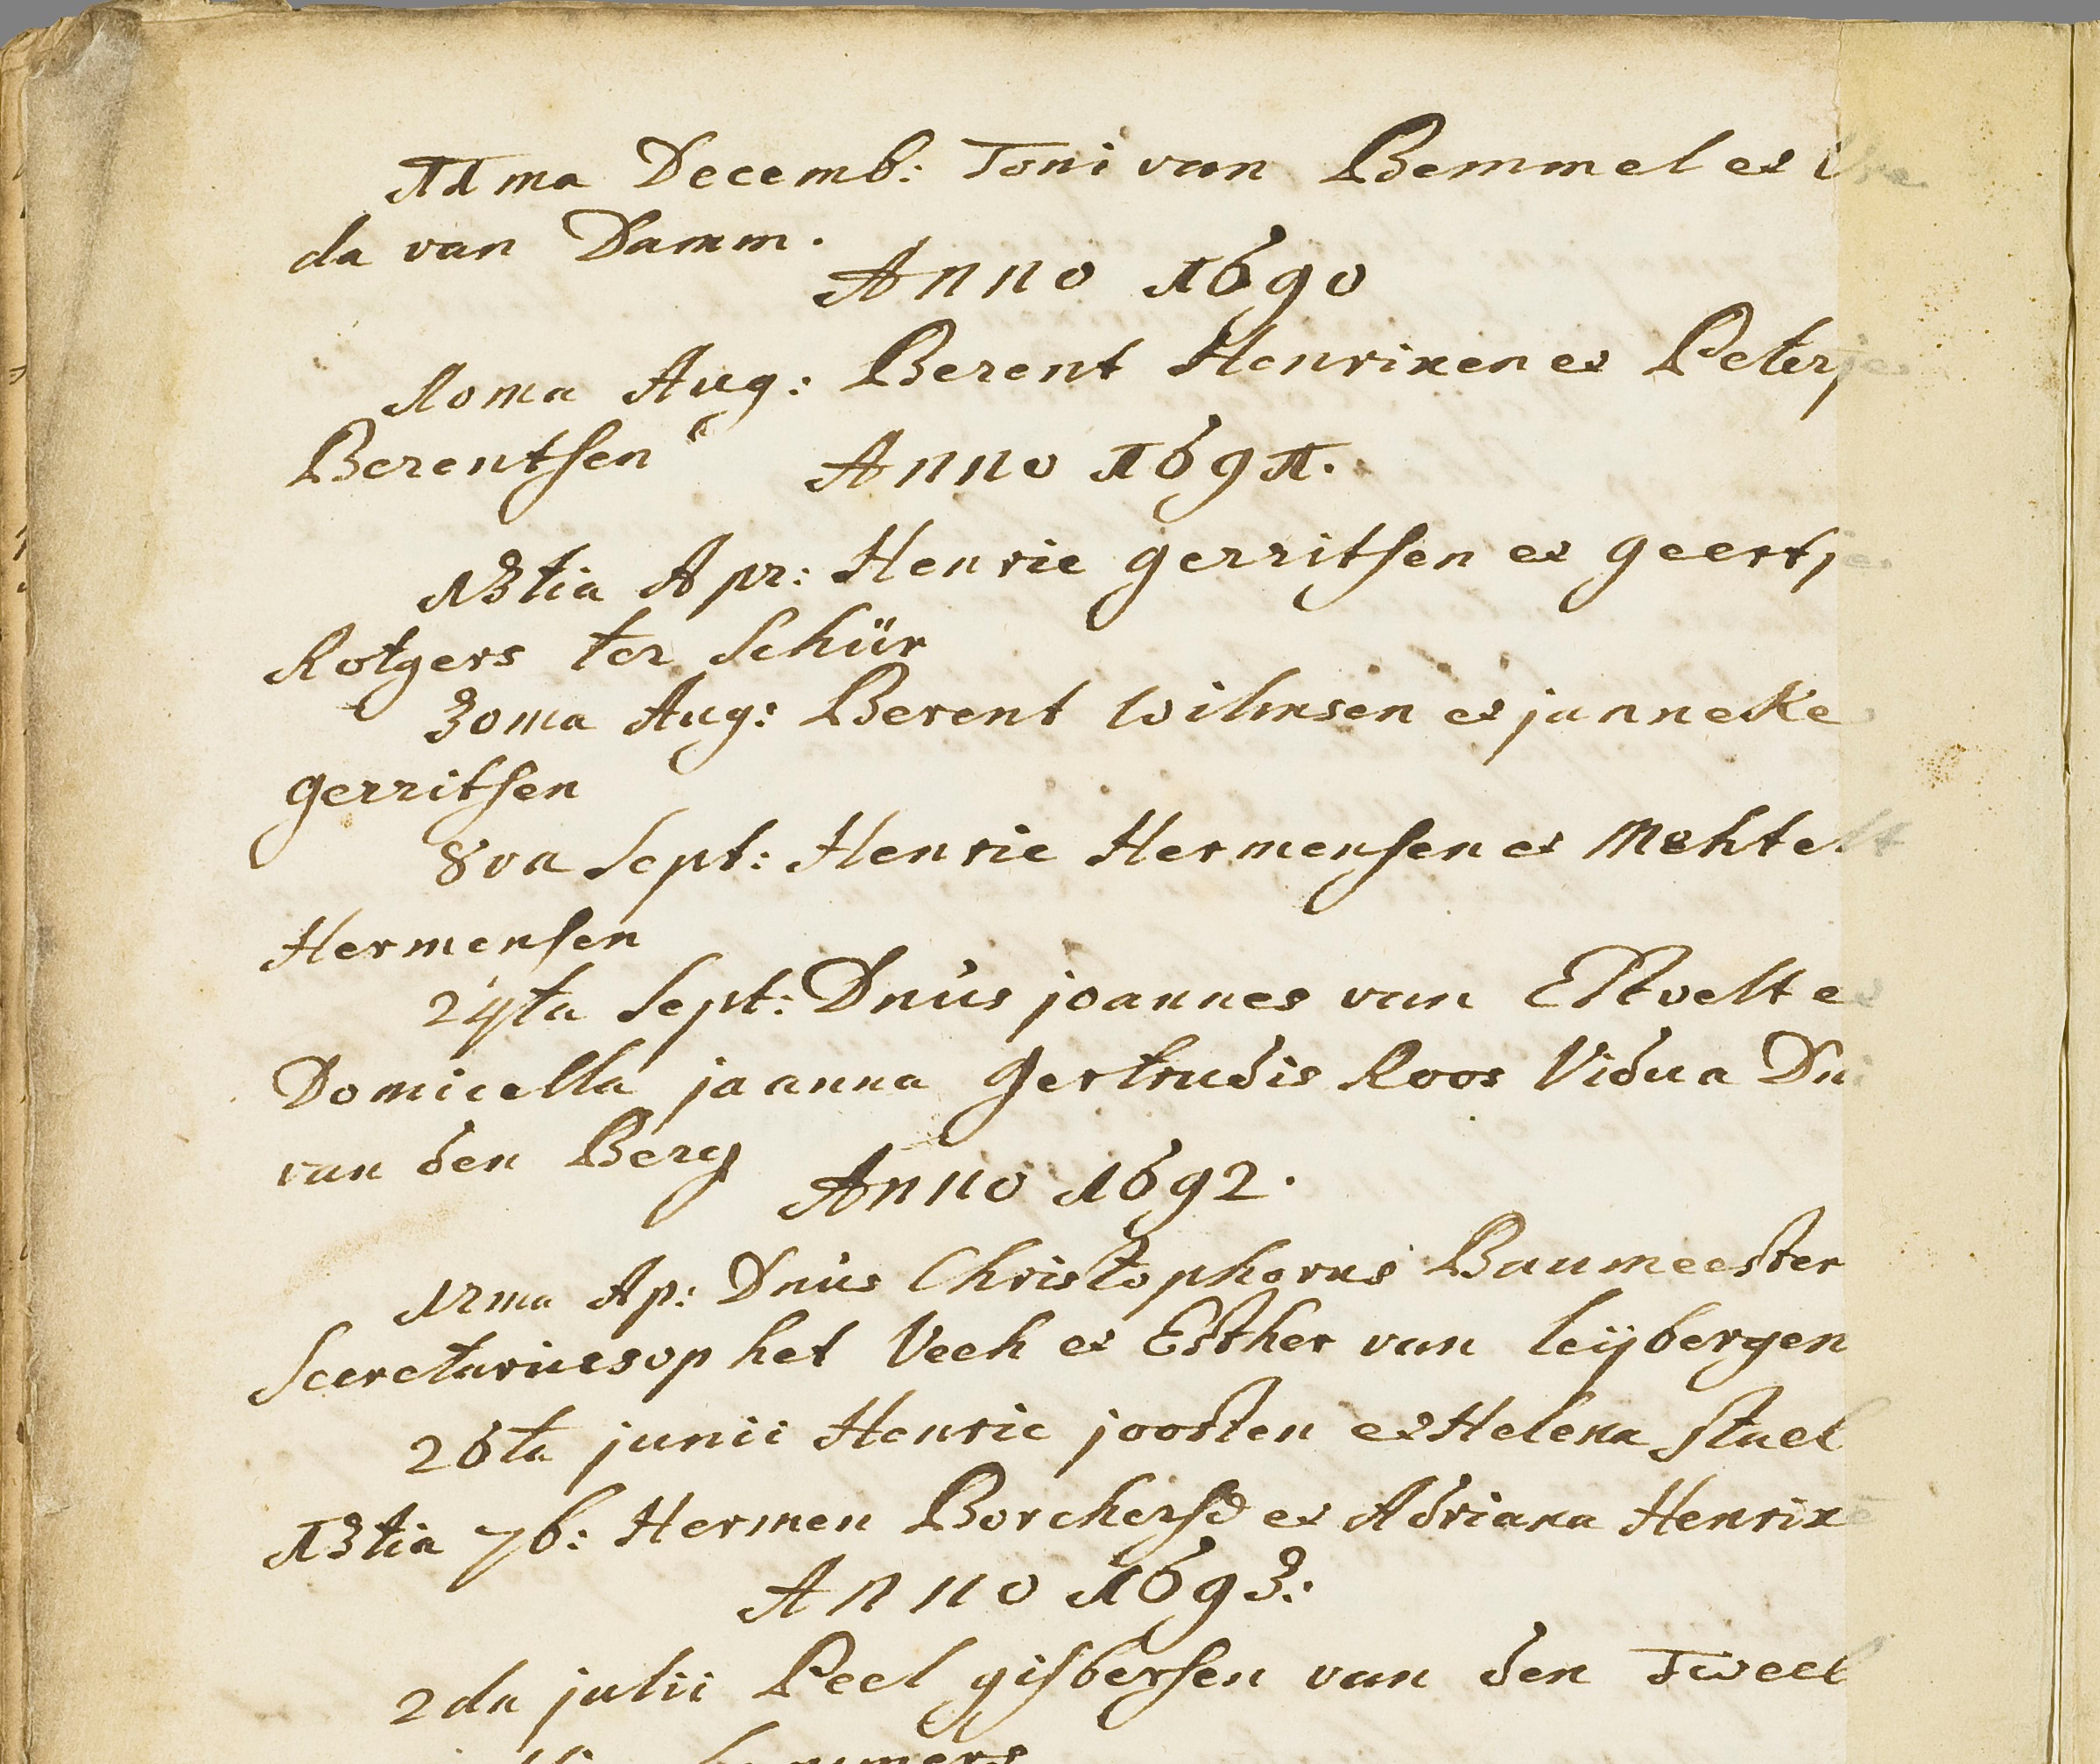 11ma Decemb: Toni van Bemmel et
da van Damm.
Anno 1690
10ma Aug: Berent Henrixen et Peterje
Berentsen
Anno 1691.
13tia Apr: Henric gerritsen et geertje
Rotgers ter Schür
30ma Aug: Berent wilmsen et janneke
gerritsen
8va Sept: Henric Hermensen et Mehtelt
Hermensen
24ta Sept: Dnus joannes van Elsvelt et
Domicella joanna gertrudis Roos Vidua Dni
van den Berg
Anno 1692.
12ma Ap: Dnus Christophorus Baumeester
Secretarius op het Veeh et Esther van leijbergen
26ta junii Henric joosten et Helena stael
13tia 7b: Hermen Borchersen et Adriana Henrixe
Anno 1693:
2da julii Peel gisbersen van den Tweel